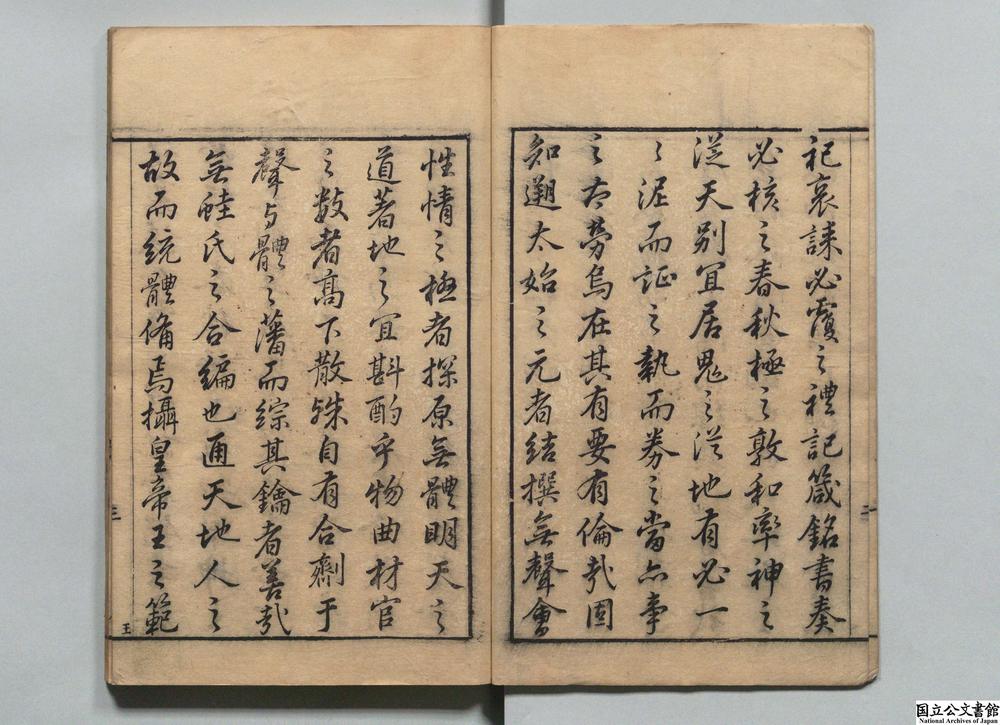 祀哀誄必覆之禮記箴銘書奏
必核之春秋極之敦和率神之
從天別宜居鬼之從地有必一
〻泥而証之執而券之當亦事
之太勞烏在其有要有倫哉固
知遡太始之元者結撰無聲會
性情之極者探原無體明天之
道著地之宜斟酌乎物曲材官
之数者高下散殊自有合劑于
聲与體之藩而綜其鑰者善哉
無蛙氏之合編也通天地人之
故而統體備焉攝皇帝王之範
二
三
王
国立公文書館
National Archives of Japan